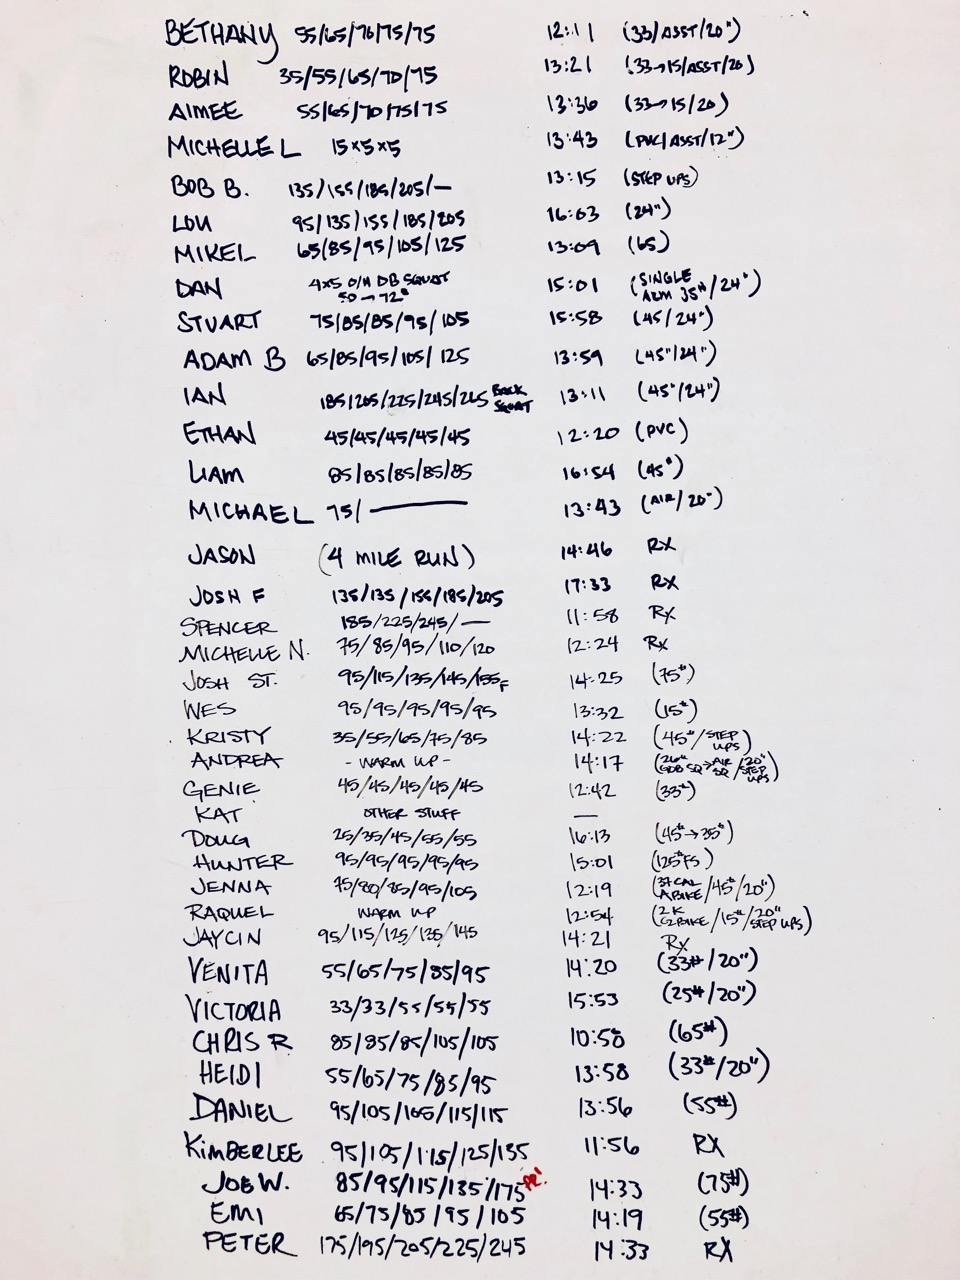 BETHANY 55/65/70/75/75 12:11 (33/ASST/20")
ROBIN 35/55/65/70/75 13:21 (33→15/ASST/20)
AIMEE 55/65/70/75/75 13:36 (33→15/20)
MICHELLE L 15×5×5 13:43 (PVC/ASST/12")
BOB B. 135/155/185/205/— 13:15 (STEP UPS)
LOU 95/135/155/185/205 16:03 (24")
MIKEL 65/85/95/105/125 13:09 (65)
DAN 4×5 O/H DB SQUAT 50→72# 15:01 (SINGLE ARM 35#/24")
STUART 75/85/85/95/105 15:58 (45/24")
ADAM B 65/85/95/105/125 13:59 (45"/24")
IAN 185/205/225/245/265 BACK SQUAT 13:11 (45"/24")
ETHAN 45/45/45/45/45 12:20 (PVC)
LIAM 85/85/85/85/85 16:54 (45#)
MICHAEL 75/— 13:43 (AIR/20")
JASON (4 MILE RUN) 14:46 RX
JOSH F 135/135/155/185/205 17:33 RX
SPENCER 185/225/245/— 11:58 RX
MICHELLE N. 75/85/95/110/120 12:24 RX
JOSH ST. 95/115/135/145/155F 14:25 (75#)
WES 95/95/95/95/95 13:32 (15#)
KRISTY 35/55/65/75/85 14:22 (45#/STEP UPS)
ANDREA - WARM UP - 14:17 (26# GOB SQ→AIR SQ/20" STEP UPS)
GENIE 45/45/45/45/45 12:42 (33#)
KAT OTHER STUFF —
DOUG 25/35/45/55/55 16:13 (45#→35#)
HUNTER 95/95/95/95/95 15:01 (125# FS)
JENNA 75/80/85/95/105 12:19 (37 CAL A BIKE/45#/20")
RAQUEL WARM UP 12:54 (2K C2BIKE/15#/20" STEP UPS)
JAYCIN 95/115/125/135/145 14:21 RX
VENITA 55/65/75/85/95 14:20 (33#/20")
VICTORIA 33/33/55/55/55 15:53 (25#/20")
CHRIS R 85/85/85/105/105 10:58 (65#)
HEIDI 55/65/75/85/95 13:58 (33#/20")
DANIEL 95/105/105/115/115 13:56 (55#)
KIMBERLEE 95/105/115/125/135 11:56 RX
JOE W. 85/95/115/135/175 PR! 14:33 (75#)
EMI 65/75/85/95/105 14:19 (55#)
PETER 175/195/205/225/245 14:33 RX